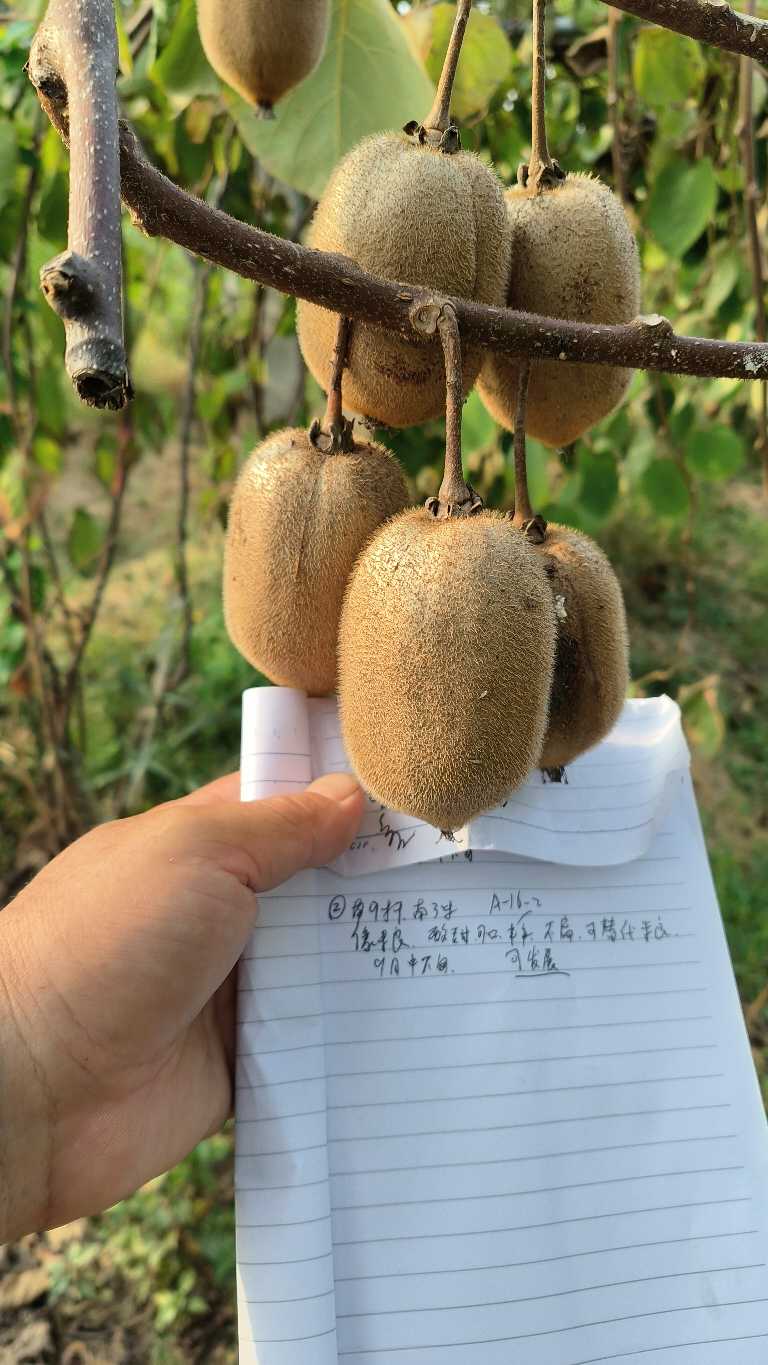 ② 南9行. 南3株 A-16-2
像米良. 酸甜可口. 不扁. 可替代米良.
9月中下旬. 可发展